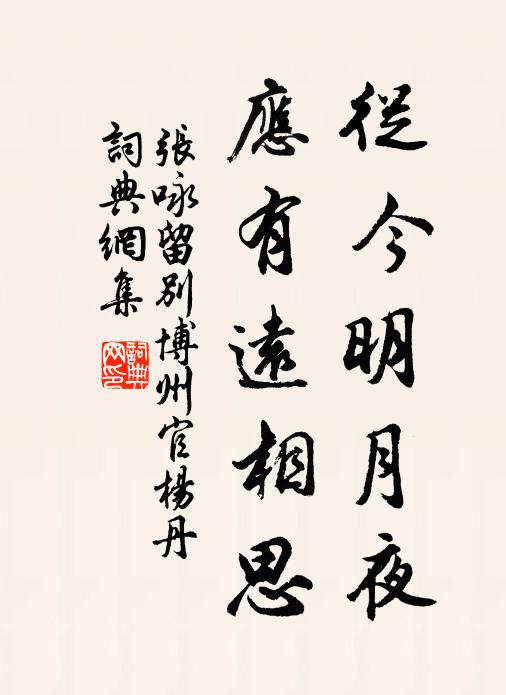 從今明月夜
應有遠相思
張咏留別博州官楊丹
詞典網集
詞典
网印